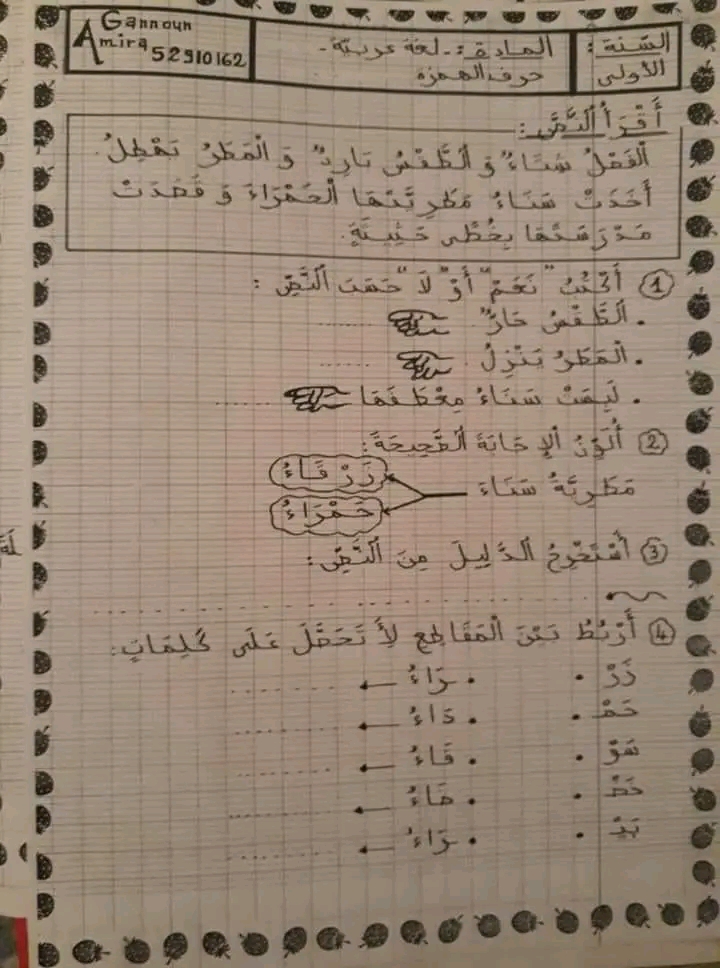 السّنة:
الأولى
المادة:- لغة عربية-
حرف الهمزة
Gannoun
Amira 52910162
أَقْرَأُ النَّصَّ:
اَلْفَصْلُ شِتَاءٌ وَ الطَّقْسُ بَارِدٌ وَ الْمَطَرُ يَهْطِلُ.
أَخَذَتْ سَنَاءُ مَطَرِيَّتَهَا الْحَمْرَاءَ وَ قَصَدَتْ
مَدْرَسَتَهَا بِخُطًى حَثِيثَةٍ.
1 أَكْتُبُ "نَعَمْ" أَوْ "لَا" حَسَبَ النَّصِّ:
. الطَّقْسُ حَارٌّ ..........
. الْمَطَرُ يَنْزِلُ ..........
. لَبِسَتْ سَنَاءُ مِعْطَفَهَا ..........
2 أُلَوِّنُ الْإِجَابَةَ الصَّحِيحَةَ:
مَطَرِيَّةُ سَنَاءَ
زَرْقَاءُ
حَمْرَاءُ
3 أَسْتَخْرِجُ الدَّلِيلَ مِنَ النَّصِّ:
4 أَرْبُطُ بَيْنَ الْمَقَاطِعِ لِأَتَحَصَّلَ عَلَى كَلِمَاتٍ:
زَرْ . . رَاءُ ← ..........
حَمْ . . دَاءُ ← ..........
سَوْ . . قَاءُ ← ..........
خَضْ . . ضَاءُ ← ..........
بَيْ . . رَاءُ ← ..........